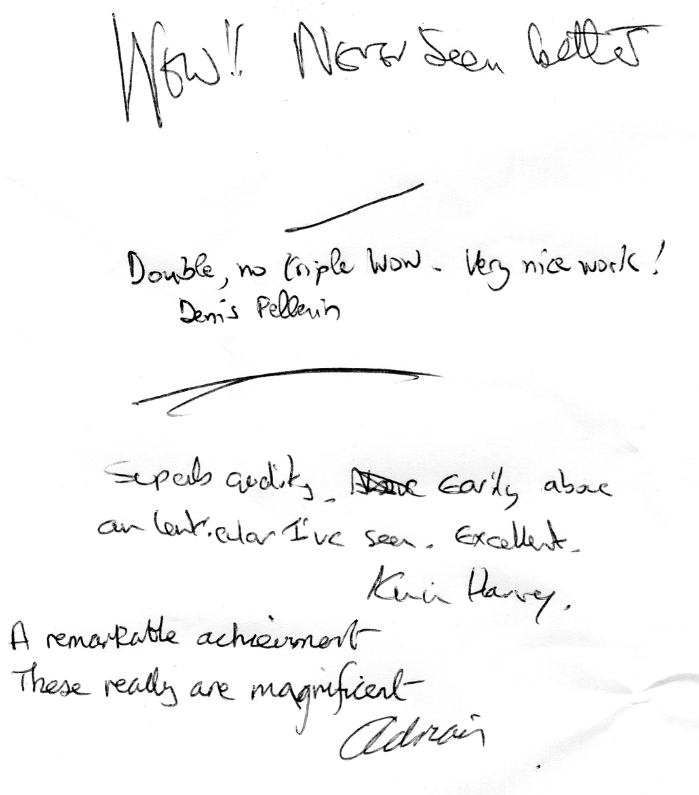 Wow!! Never Seen better
Double, no triple wow. Very nice work!
Denis Pellerin
Superb quality. Easily above
any lenticular I've seen. Excellent.
Harvey.
A remarkable achievement
These really are magnificent